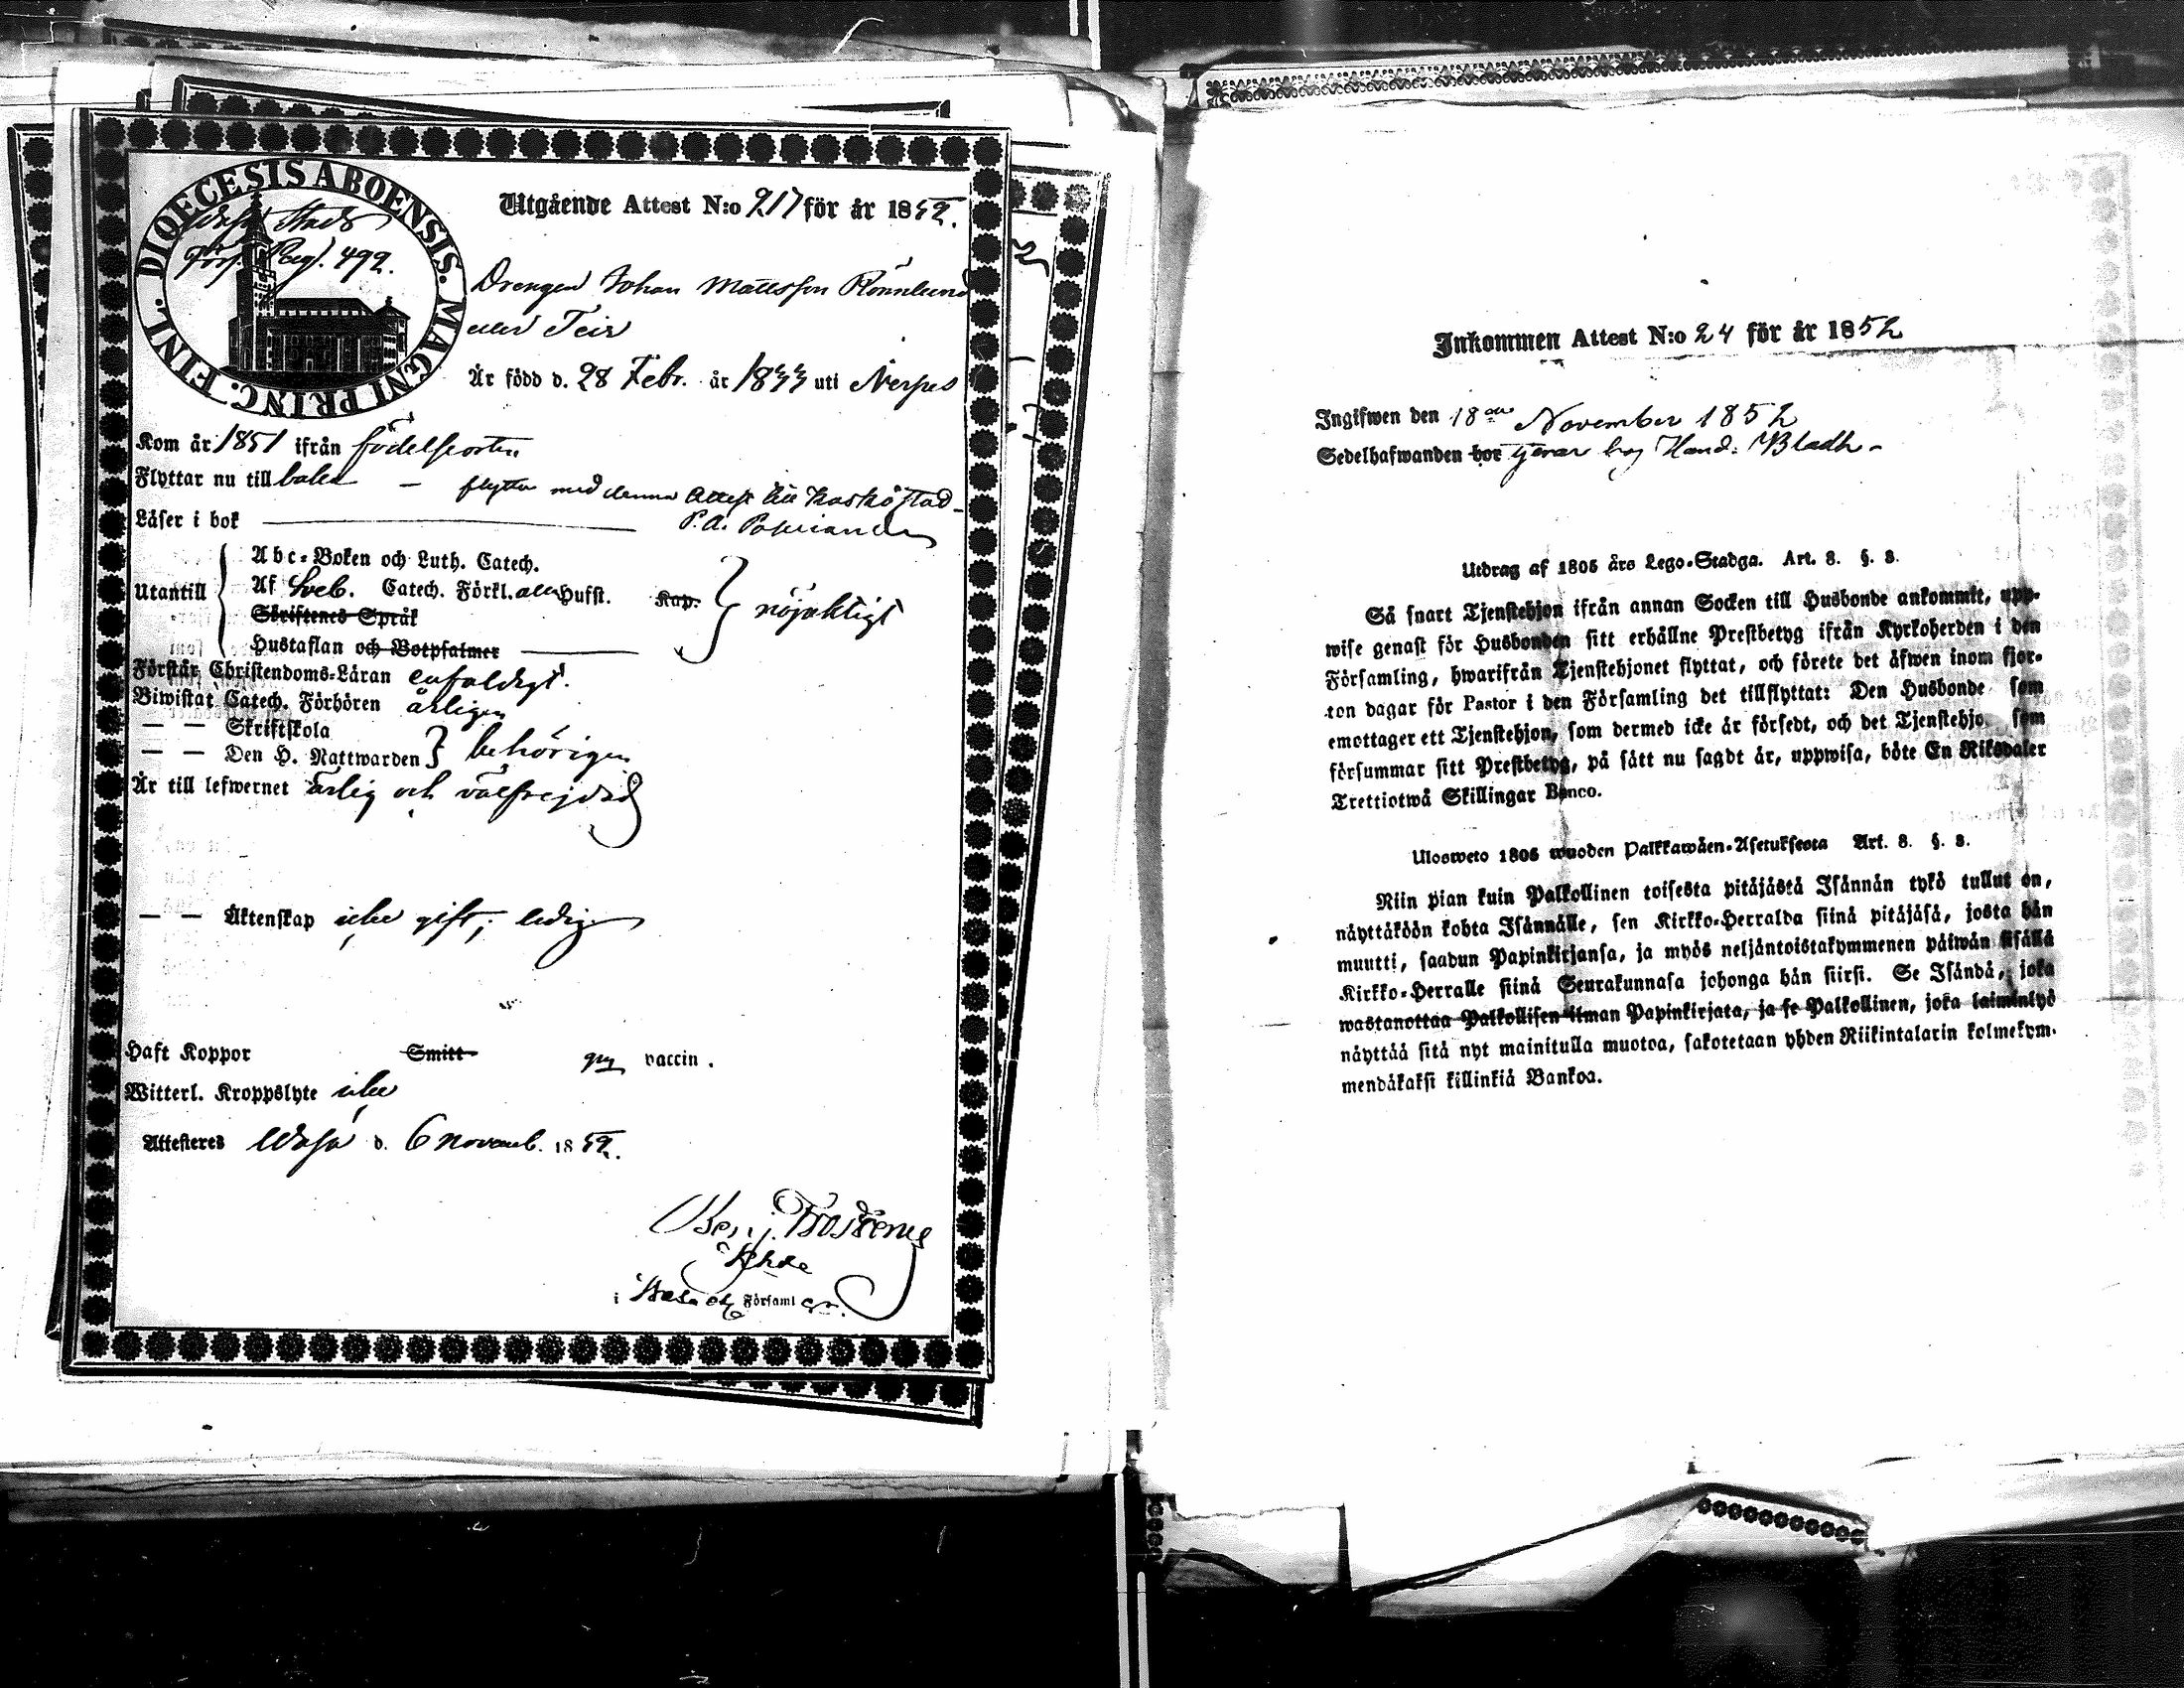 DIOECESIS ABOENSIS. MAGNI PRINC. FINL.
Wasa Stads
Förs. Pag. 492.
Utgående Attest N:o 217 för år 1852.
Drengen Johan Mattsson Rönnlund
eller Teir
Är född d. 28 Febr. år 1833 uti Nerpes
Kom år 1851 ifrån födelseorten
Flyttar nu till baka – flyttar med denna Attest till Kaskö stad –
P. A.
Läser i bok
Utantill
Abc-Boken och Luth. Catech.
Af Sveb. Catech. Förkl. alla Hufst. Kap.
Skriftenes Språk
nöjaktigt
Hustaflan och Botpsalmer
Förstår Christendoms-Läran enfaldigt.
Biwistat Catech. Förhören årligen
— — Skriftskola
— — Den H. Nattwarden
behörigen
Är till lefwernet ärlig och välfrejdad
— — Äktenskap icke gift; ledig
Haft Koppor Smitt vaccin.
Witterl. Kroppslyte icke
Attesteres Wasa d. 6 novemb. 1852.
Benj. Frosterus
i Wasa Församl
Inkommen Attest N:o 24 för år 1852
Ingifwen den 18de November 1852
Sedelhafwanden bor tjenar hos Hand: Bladh –
Utdrag af 1805 års Lego-Stadga. Art. 8. §. 3.
Så snart Tjenstehjon ifrån annan Socken till Husbonde ankommit, upp-
wise genast för Husbonden sitt erhållne Prestbetyg ifrån Kyrkoherden i den
Församling, hwarifrån Tjenstehjonet flyttat, och förete det äfwen inom fjor-
ton dagar för Pastor i den Församling det tillflyttat: Den Husbonde som
emottager ett Tjenstehjon, som dermed icke är försedt, och det Tjenstehjo. som
försummar sitt Prestbetyg, på sätt nu sagdt är, uppwisa, böte En Riksdaler
Trettiotwå Skillingar Banco.
Ulosweto 1805 wuoden Palkkawäen-Asetuksesta Art. 8. §. 3.
Niin pian kuin Palkollinen toisesta pitäjästä Isännän tykö tullut on,
näyttäköön kohta Isännälle, sen Kirkko-Herralda siinä pitäjäsä, josta hän
muutti, saadun Papinkirjansa, ja myös neljäntoistakymmenen päiwän sisällä
Kirkko-Herralle siinä Seurakunnasa johonga hän siirsi. Se Isändä, joka
wastanottaa Palkollisen ilman Papinkirjata, ja se Palkollinen, joka laiminlyö
näyttää sitä nyt mainitulla muotoa, sakotetaan yhden Riikintalarin kolmekym-
mendäkaksi killinkiä Bankoa.